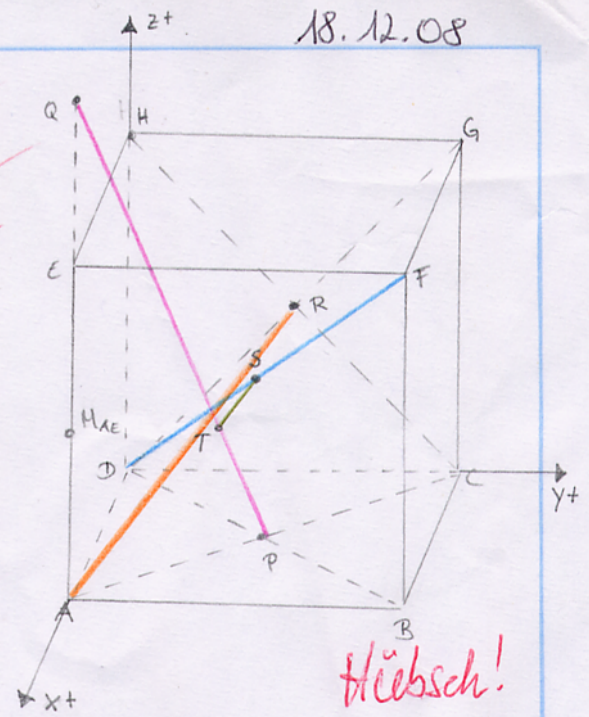 18.12.08
z+
Q
H
G
E
F
R
S
M_AE
T
D
C
y+
P
A
B
x+
Hübsch!